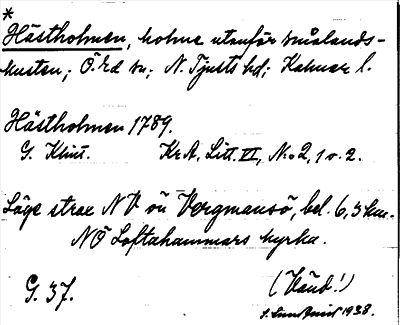 *
Hästholmen, holme utanför smålands-
kusten; Ö. Ed sn; N. Tjusts hd; Kalmar l.
Hästholmen 1789.
G. Klint. Kr.A, Litt. VI, No 2, 1 o. 2.
Läge strax NV om Vergmansö, bel. 6,5 km.
NÖ Loftahammars kyrka.
G. 37. (Vänd!)
1938.